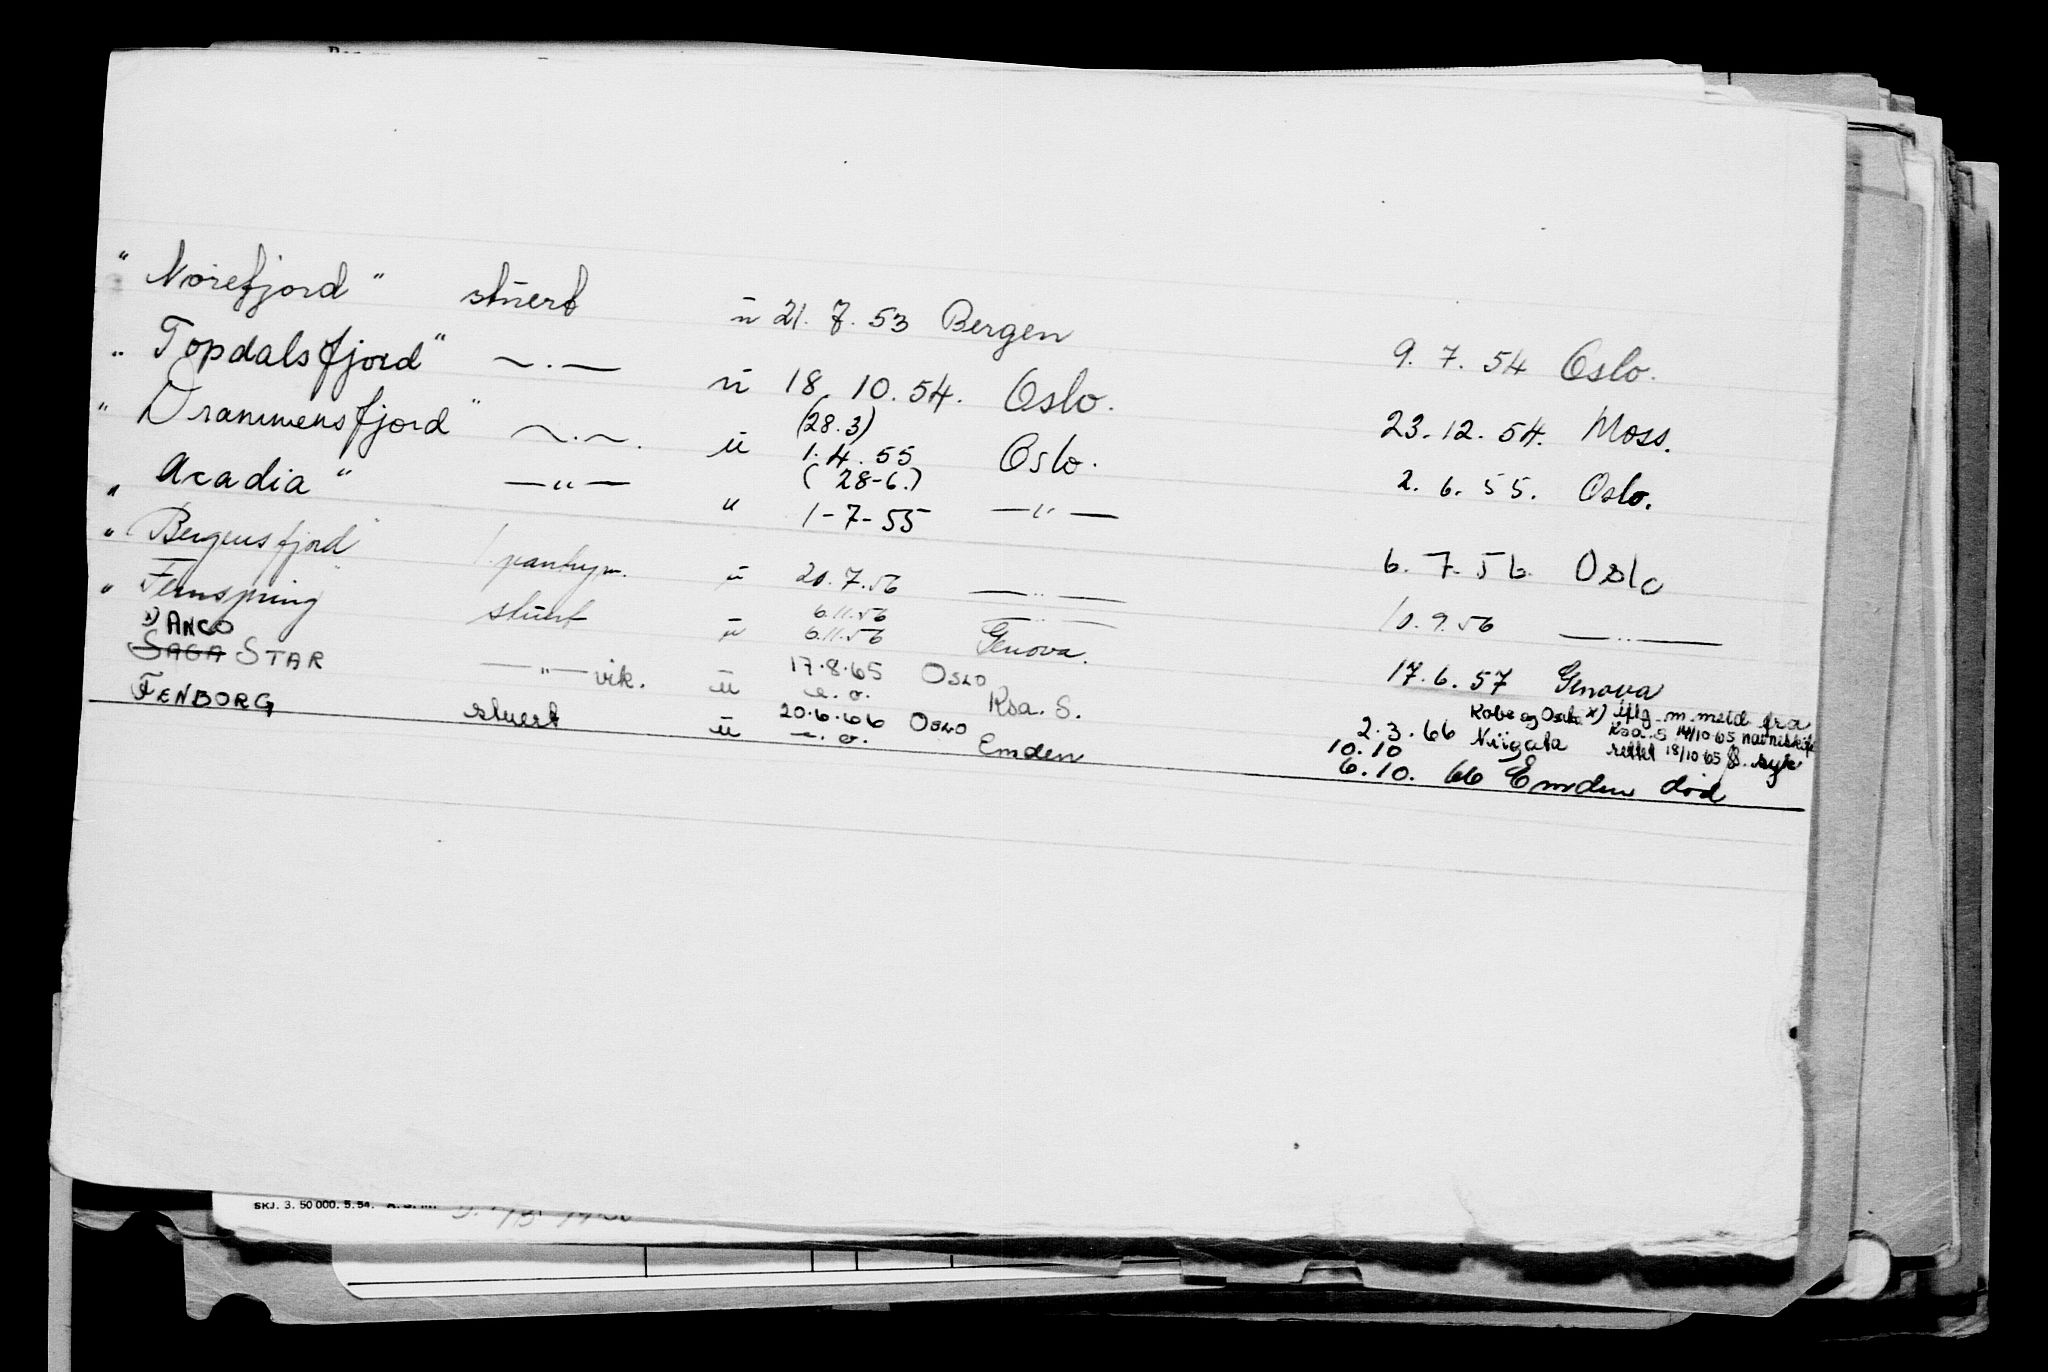 "Norefjord" stuert u 21.7.53 Bergen 9.7.54 Oslo.
"Topdalsfjord" — . — u 18.10.54. Oslo. 23.12.54. Moss.
"Drammensfjord" — . — . u (28.3) 1.4.55 Oslo. 2.6.55. Oslo.
"Acadia" — " — " (28-6.) 1-7-55 — " — 6.7.56 Oslo
"Bergensfjord" 1. pantrym. u 20.7.56 — " — 10.9.56 — " —
"Fernspring" stuert u 6.11.56 6.11.56 — " — Genova. 17.6.57 Genova
x) ANCO
SAGA STAR — " — vik. u 17.8.65 OSLO Ksa. S. 2.3.66 Niigata syk
Kobe og Osaka x) iflg. m. meld fra
Ksa. S 14/10 65 navneskifte
rettet 18/10 65
FENBORG stuert u 20.6.66 OSLO Emden 10.10
6.10.66 Emden død
SKJ. 3. 50 000. 5. 54.